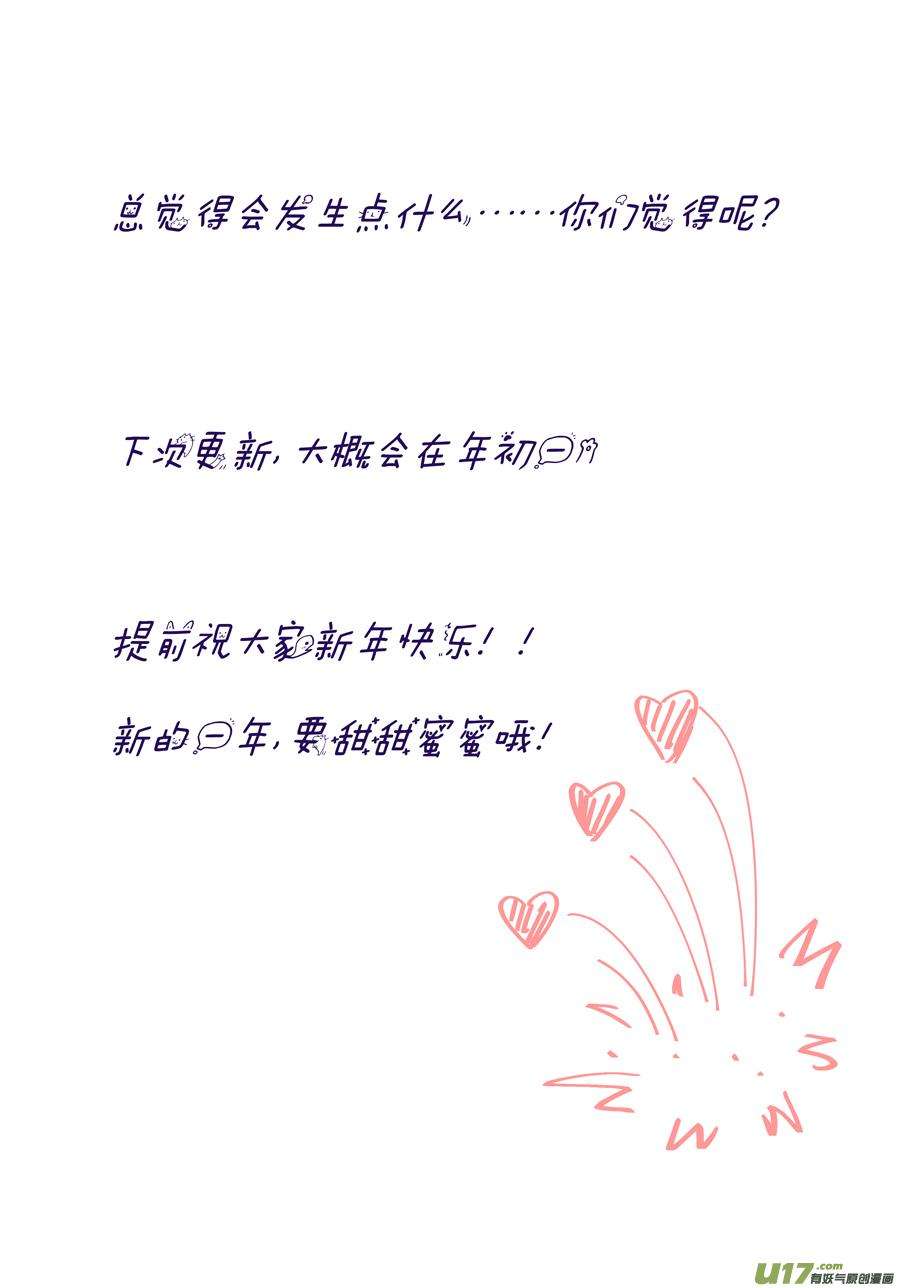 总觉得会发生点什么……你们觉得呢?
下次更新,大概会在年初一
提前祝大家新年快乐!!
新的一年,要甜甜蜜蜜哦!
U17.com
有妖气原创漫画